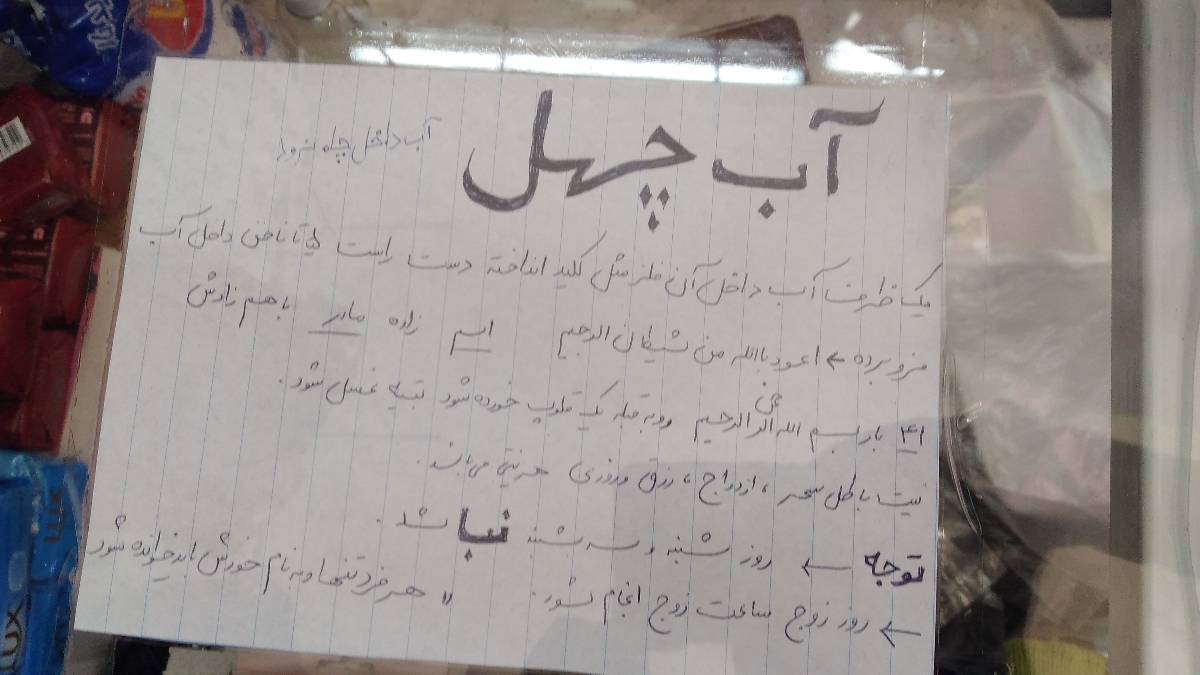 آب چهل
آب داخل چاه نرود
یک ظرف آب داخل آن فلز مثل کلید انداخته دست راست تا ناخن داخل آب
فرو برده ← اعوذ بالله من شیطان الرجیم اسم زاده مادر با هم زادش
۴۱ بار بسم الله الرحمن الرحیم رو به قبله یک قلوپ خورده شود بقیه غسل شود.
نیت باطل سحر، ازدواج، رزق و روزی هر نیتی می باشد.
توجه ← روز شنبه و سه شنبه نباشد.
← روز زوج ساعت زوج انجام شود. " هر فرد تنها و به نام خودش باید خوانده شود
LUX
LUX